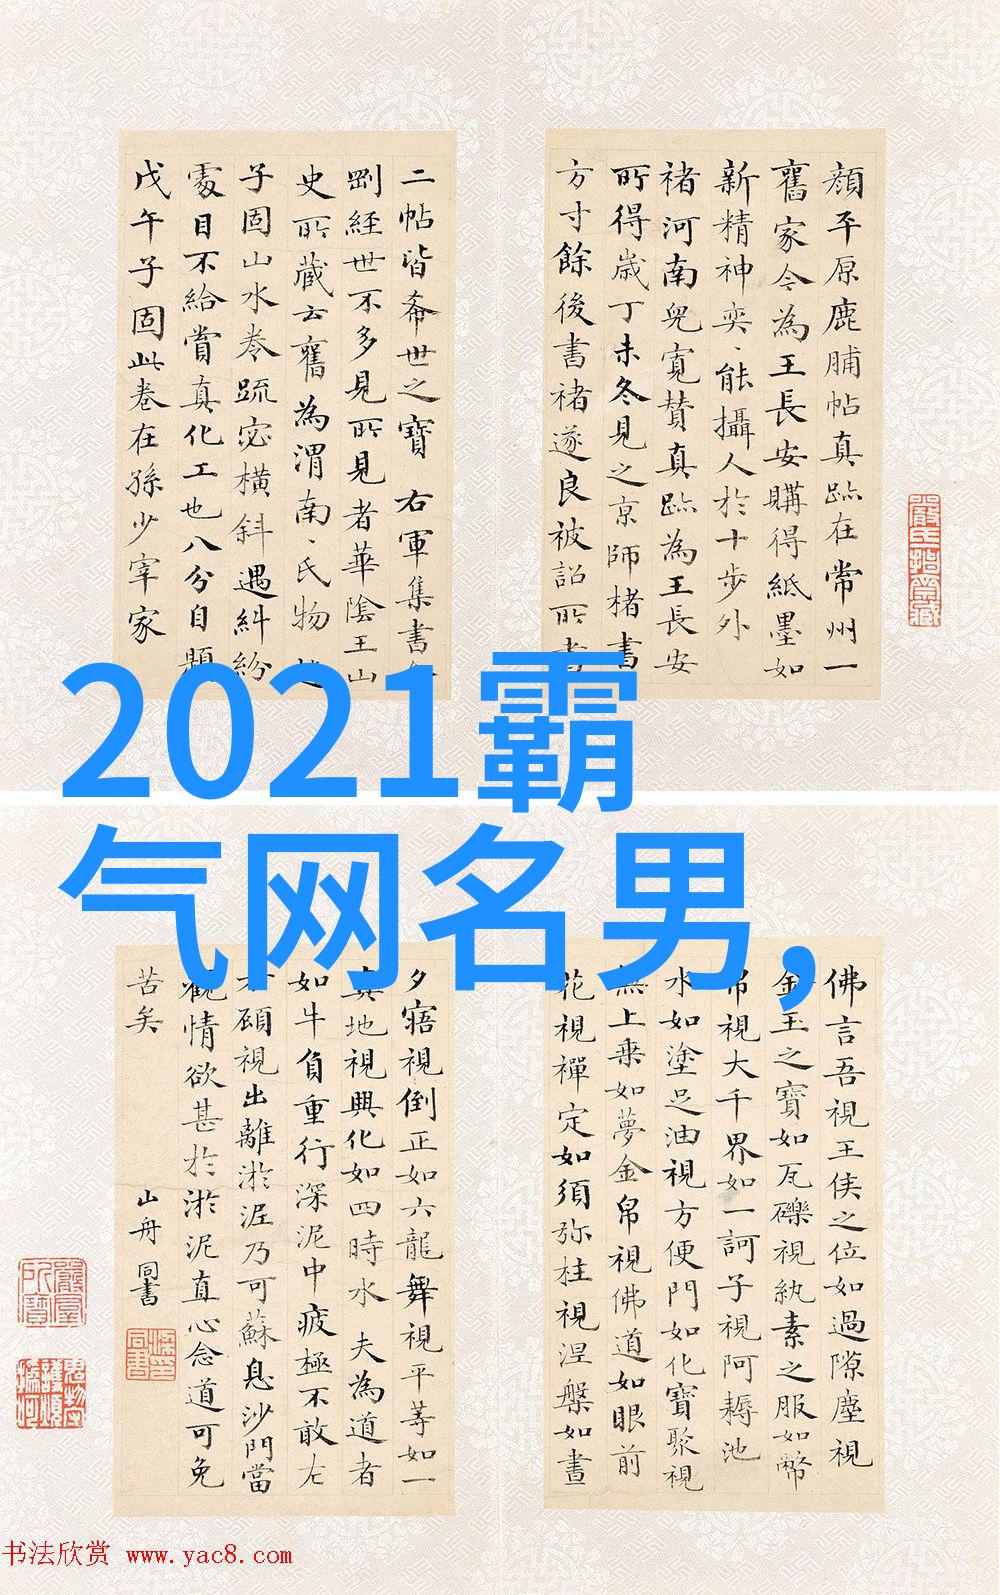 顔平原鹿脯帖真跡在常州一
舊家今為王長安購得紙墨如
新精神奕〻能攝人於十步外
褚河南兒寬贊真跡為王長安
所得歲丁未冬見之京師楮書
方寸餘後書褚遂良被詔所書
二帖皆希世之寶 右軍集書
剛經世不多見所見者華陰王山
史所藏云舊為渭南〻氏物
子固山水卷疏密橫斜遇糾紛
處目不給賞真化工也八分自題
戊午子固此卷在孫少宰家
2021霸
气网名男,
佛言吾視王侯之位如過隙塵視
金玉之寶如瓦礫視紈素之服如幣
帛視大千界如一訶子視阿耨池
水如塗足油視方便門如化寶聚視
無上乗如夢金帛視佛道如眼前
花視禪定如須弥柱視涅槃如晝
夕寤視倒正如六龍舞視平等如一
真地視興化如四時水 夫為道者
如牛負重行深泥中疲極不敢左
右顧視出離淤泥乃可蘇息沙門當
觀情欲甚於淤泥直心念道可免
苦矣 山舟同書
书法欣赏 www.yac8.com